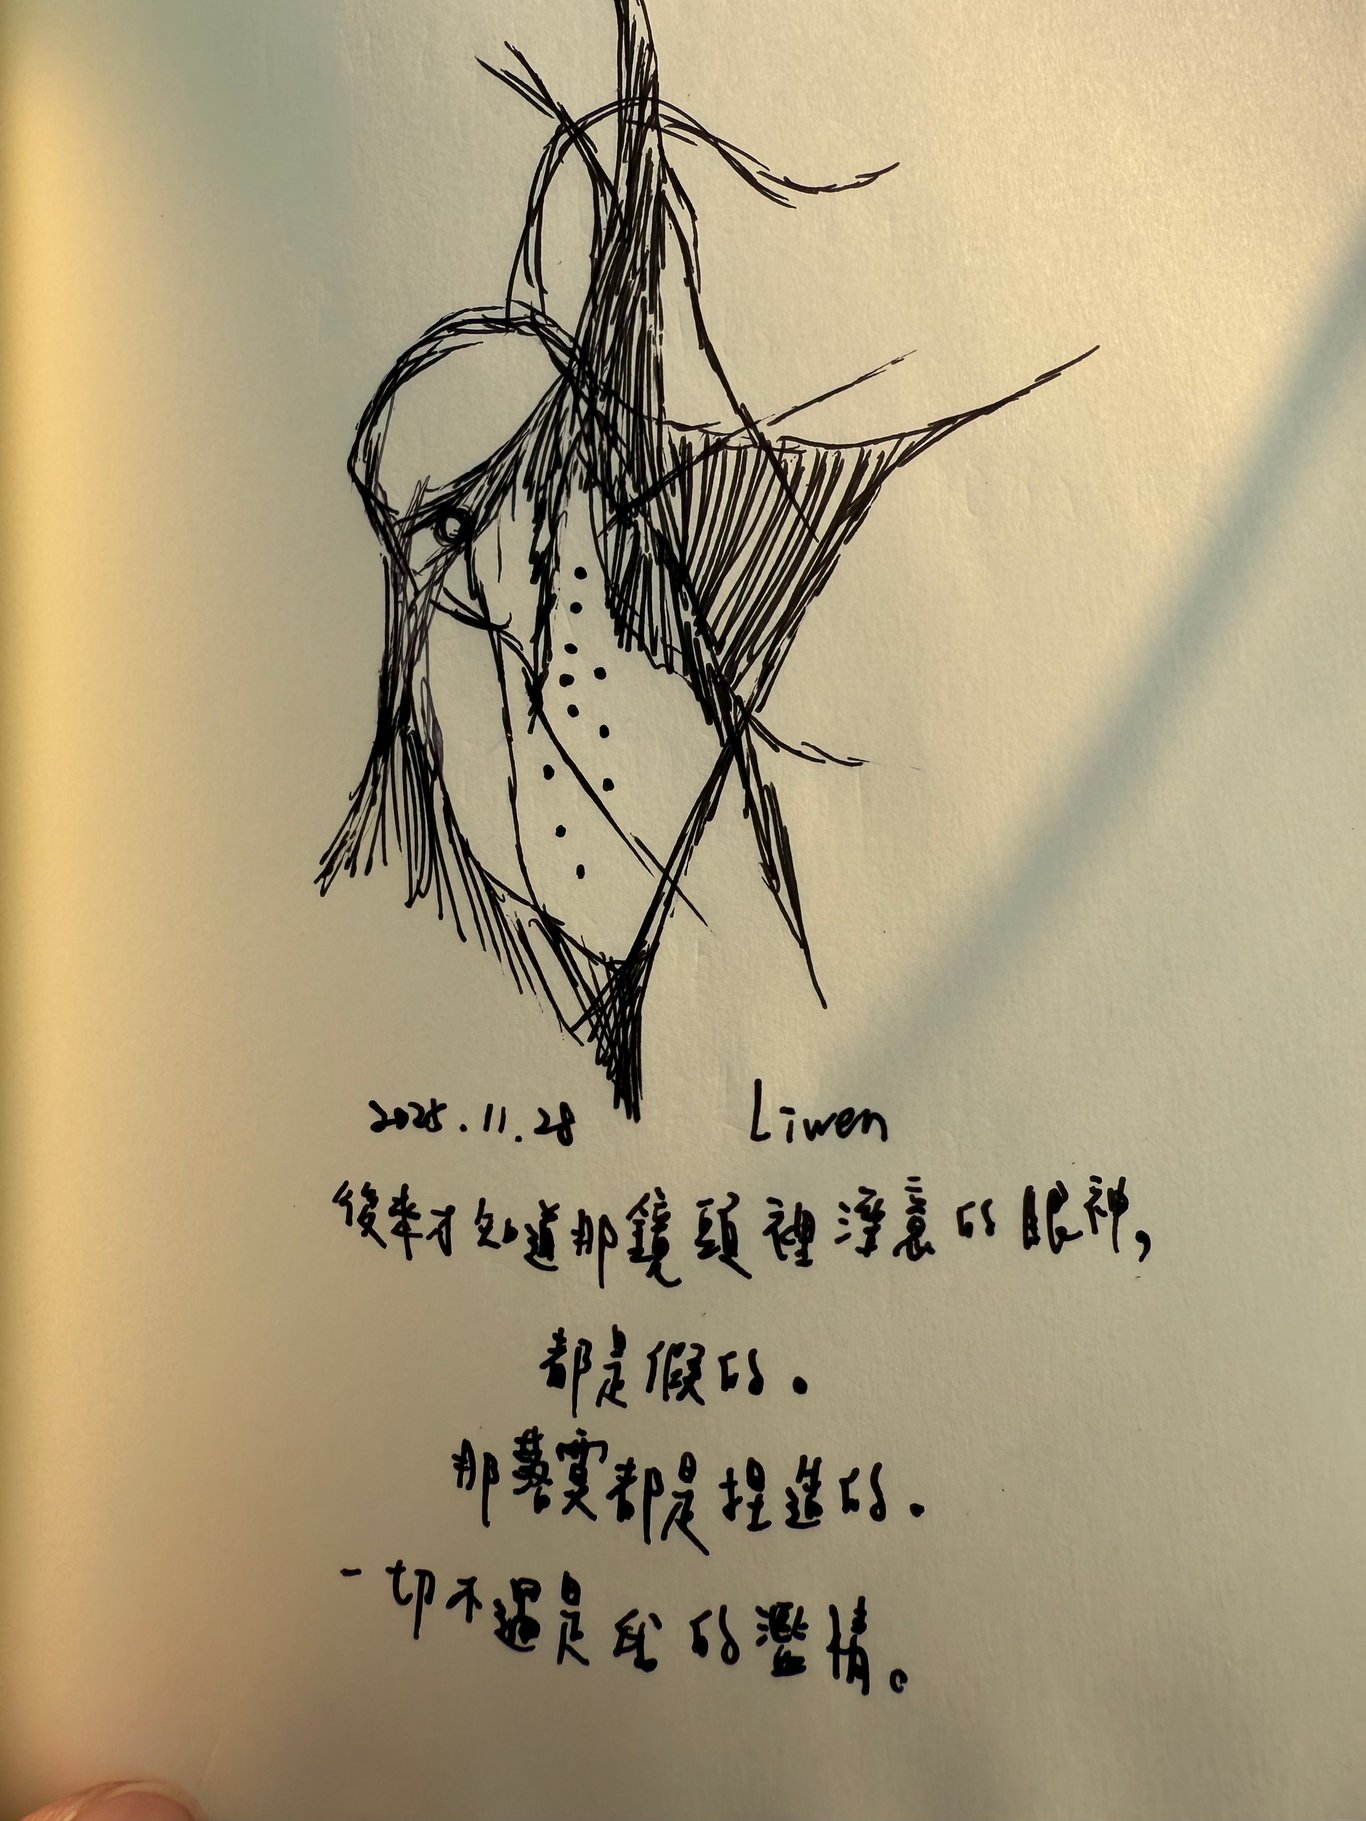 2025.11.28 Liwen
後來才知道那鏡頭裡深裏的眼神，
都是假的。
那舊夢都是捏造的。
一切不過是我的濫情。